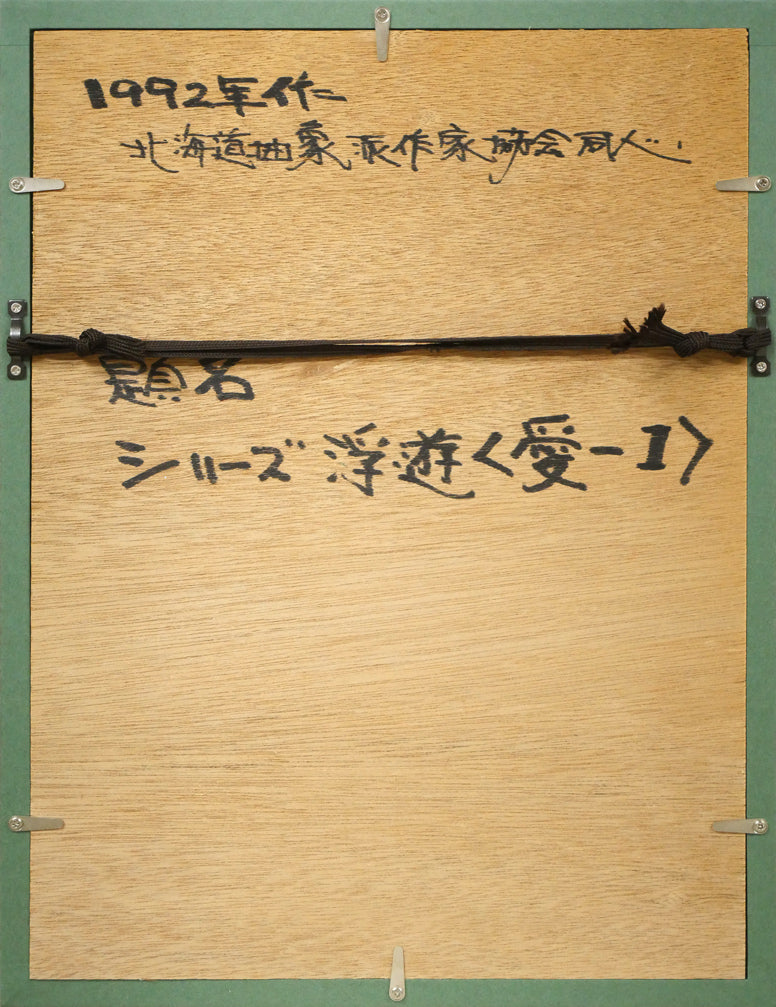 1992年作
北海道抽象派作家協会同人.
題名
シリーズ 浮遊〈愛-I〉